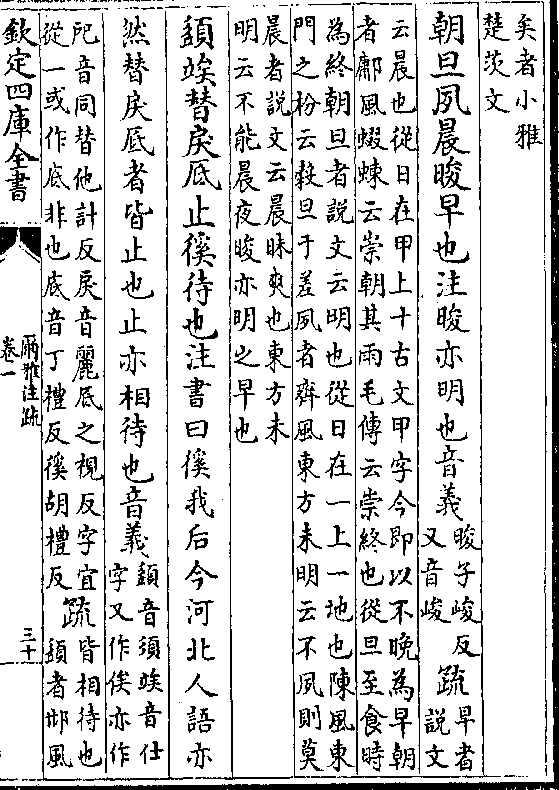 矣者小雅
楚茨文
朝旦夙晨晙早也注晙亦明也音義晙子峻反
又音峻
疏早者
說文
云晨也從日在甲上十古文甲字今即以不晚為早朝
者鄘風蝃蝀云崇朝其雨毛傳云崇終也從旦至食時
為終朝旦者說文云明也從日在一上一地也陳風東
門之枌云榖旦于差夙者齊風東方未明云不夙則莫
晨者說文云晨昧爽也東方未
明云不能晨夜晙亦明之早也
頿竢替戾厎止徯待也注書曰徯我后今河北人語亦
然替戾厎者皆止也止亦相待也音義頿音須竢音仕
字又作俟亦作
𥏳音同替他計反戾音麗厎之視反字宜
從一或作底非也底音丁禮反徯胡禮反
疏皆相待也
頿者邶風
欽定四庫全書
爾雅注疏
卷一
三十